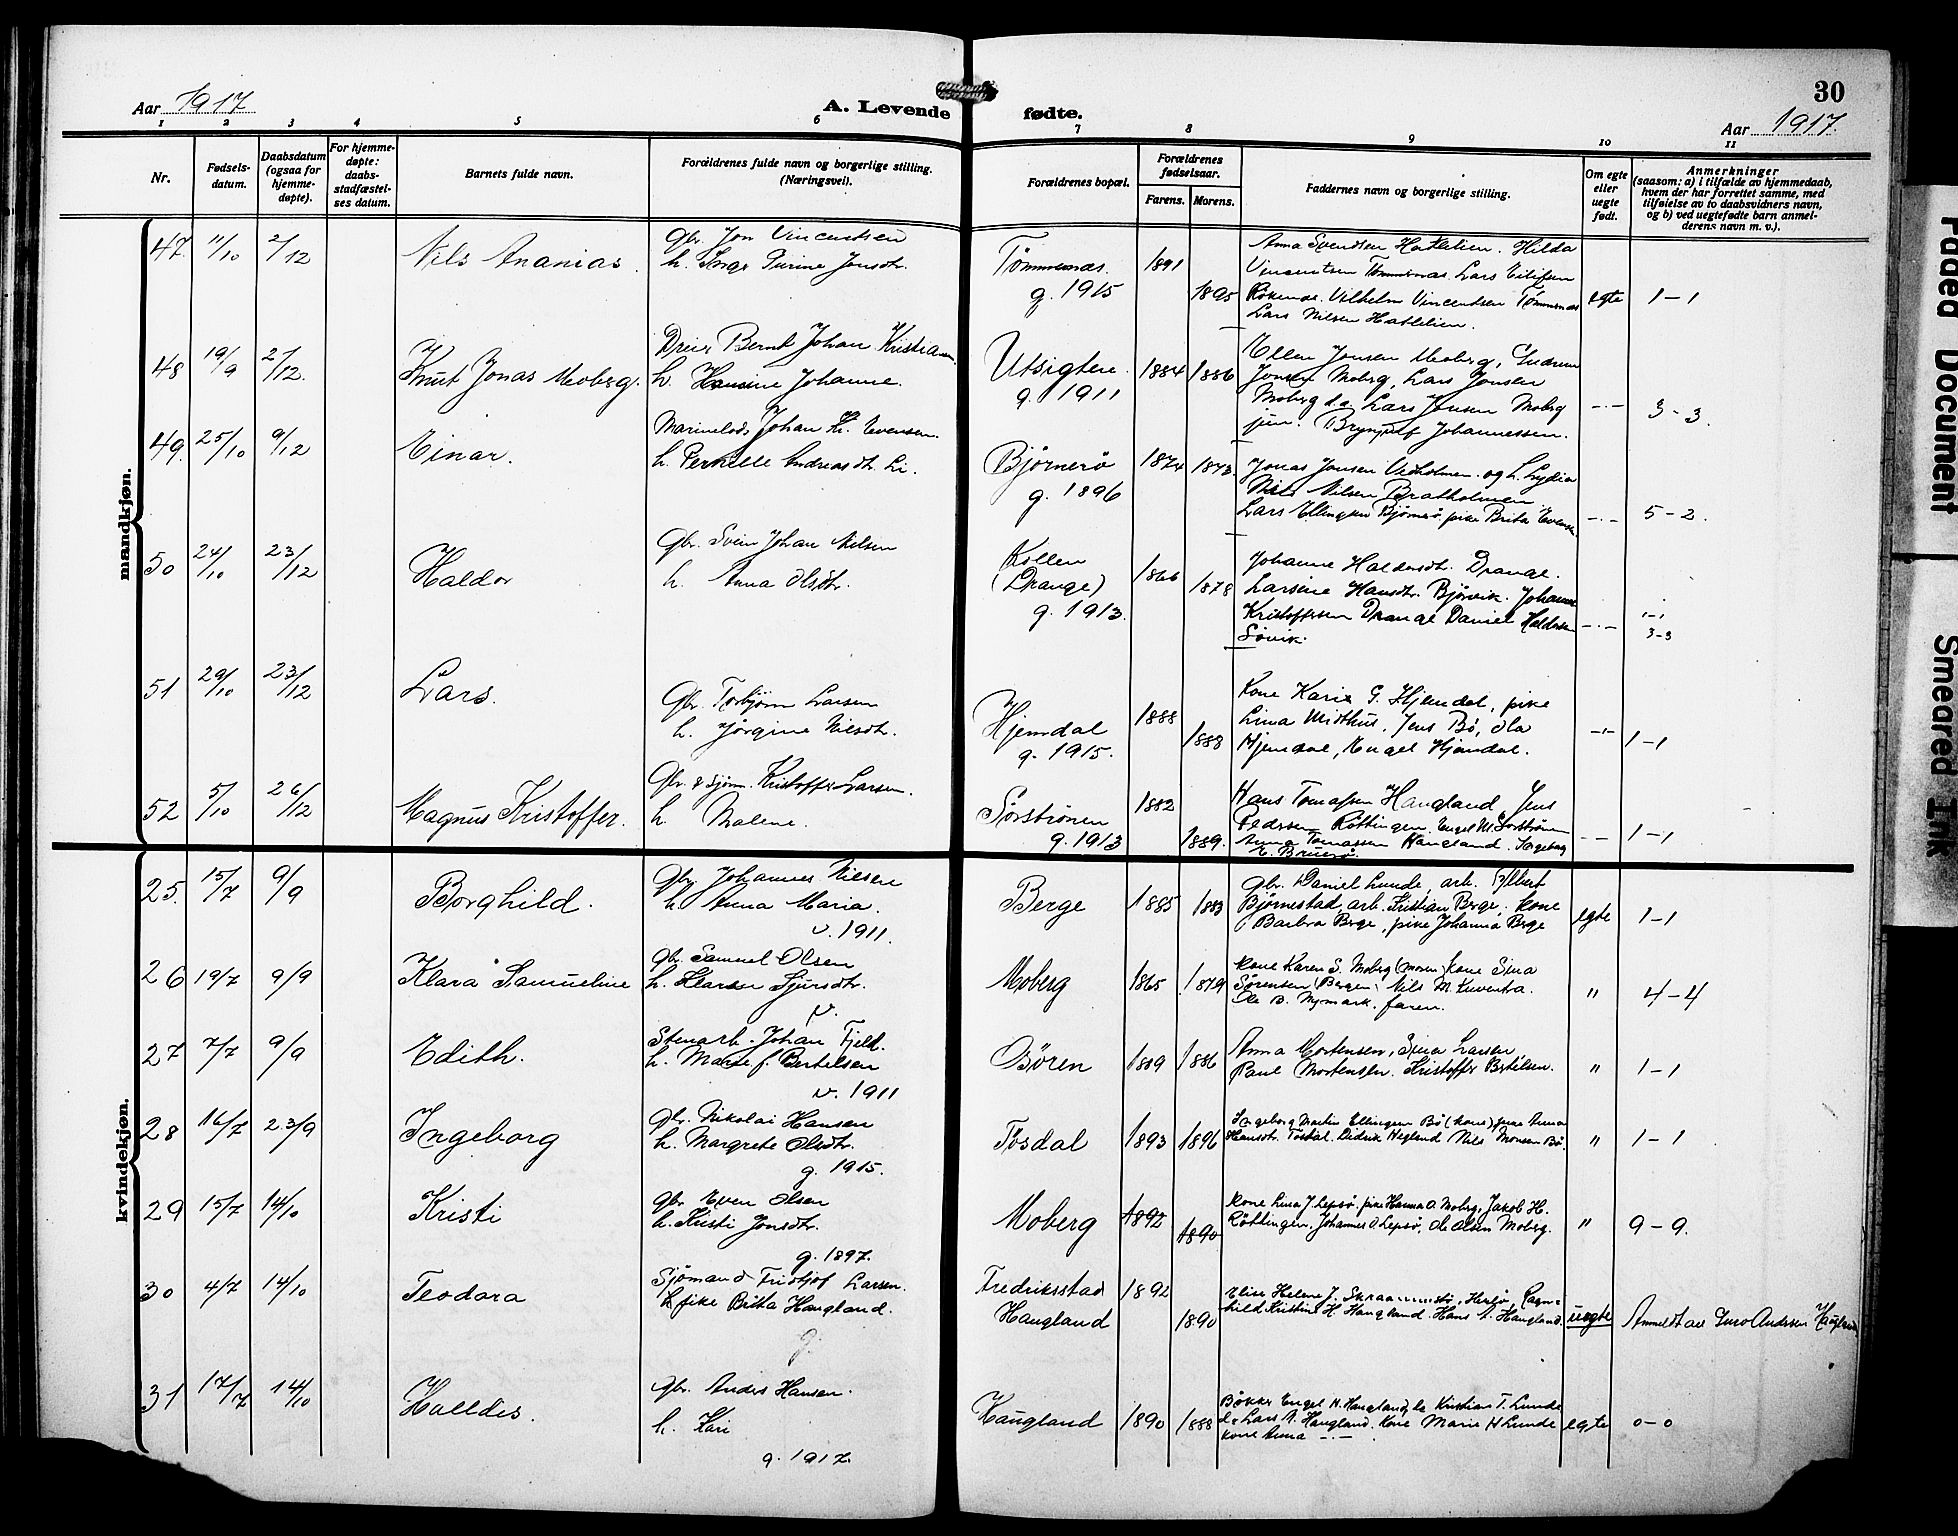 Aar 1917
A. Levende fødte.
30
Aar 1917.
1 2 3 4 5 6 7 8 9 10 11
Nr.
Fødsels-datum.
Daabsdatum (ogsaa for hjemme-døpte).
For hjemme-døpte: daabs-stadfæstel-ses datum.
Barnets fulde navn.
Forældrenes fulde navn og borgerlige stilling. (Næringsvei).
Forældrenes bopæl.
Forældrenes fødselsaar.
Farens. Morens.
Faddernes navn og borgerlige stilling.
Om egte eller uegte født.
Anmerkninger
(saasom: a) i tilfælde av hjemmedaab,
hvem der har forrettet samme, med
tilføielse av to daabsvidners navn,
og b) ved uegtefødte barn anmel-
derens navn m. v.).
mandkjøn.
47. 11/10 2/12 Nils Ananias.
Gbr. Jon Vincentsen
h. Inga Purine Jonsdtr.
Tømmernæs. g. 1915
1891 1895
Anna Svendsen Hatlelien. Hilda
Vincentsen Tømmernæs. Lars Eilifsen
Røkenes. Vilhelm Vincendsen Tømmernæs
Lars Nilsen Hatlelien.
egte 1-1
48 19/9 2/12. Knut Jonas Moberg.
Dreier Bernt Johan Kristiansen
h. Hansine Johanne.
Utsigten. g. 1911
1884 1886
Ellen Jonsen Moberg, Gudrun
Jonsen Moberg, Lars Jonsen
Moberg d.a. Lars Jonsen Moberg
jun. Brynjulf Johannessen.
-·- 3-3.
49. 25/10 9/12 Einar.
Marinelods Johan Kr. Evensen.
h. Pernille Andreasdtr. Li.
Bjørnerø g. 1896
1874 1873
Jonas Jonsen Vedholmen og h. Lydia
Nils Nilsen Bratholmen
Lars Ellingsen Bjørnerø. pike Brita Evensen
-·- 5-2.
50 24/10 23/12 Haldor
Gbr. Svein Johan Nilsen
h. Anna Olsdtr.
Kollen (Drange) g. 1913.
1866 1878
Johanne Haldorsdtr. Drange.
Larsine Hansdtr. Bjørvik. Johannes
Kristoffersen Drange Daniel Haldorsen
Søvik.
-·- 1-1
3-3
51 29/10 23/12 Lars.
Gbr. Torbjørn Larsen
h. Jørgine Nilsdtr.
Hjemdal g. 1915.
1888 1888
Kone Karie G. Hjemdal, pike
Lina Midthus, Jens Bø, Ola
Hjemdal, Engel Hjemdal.
-·- 1-1
52 5/10 26/12 Magnus Kristoffer.
Gbr. & sjøm. Kristoffer Larsen.
h. Malene.
Sørstrønen g. 1913
1882 1889.
Hans Tomassen Haugland, Jens
Pedersen Røttingen. Engel M. Sørstrønen
Anna Tomassen Haugland. Ingeborg
E. Bruerø.
-- 1-1
kvindekjøn.
25. 15/7 9/9 Borghild.
Gbr. Johannes Nilsen
h. Anna Maria.
v. 1911.
Berge 1885 1883
Gbr. Daniel Lunde, arb.
Bjørnestad, arb. Kristian Berge, kone
Barbra Berge, pike Johanna Berge
egte 1-1
26 19/7 9/9 Klara Samueline
gbr. Samuel Olsen
h. Sjursdtr.
v.
Moberg 1865 1879
kone Karen S. Moberg (moren) kone Sina
Sørensen (Bergen) Nils M. Kuventræ.
Ole B. Nymark. faren.
" 4-4
27 7/7 9/9 Edith.
Stenarb. Johan Fjeld.
h. Marie f. Bertelsen
v. 1911
Søren 1889 1886
Anna Mortensen, Sina Larsen
Paul Mortensen. Kristoffer Bertelsen.
" 1-1
28 16/7 23/9 Ingeborg
gbr. Nikolai Hansen
h. Margrete Olsdtr.
g. 1915.
Tøsdal 1893 1896
Ingeborg Martin Ellingsen Bø (kone) pike Anna
Hansdtr. Tøsdal. Didrik Heglund Nils Monsen Bø.
" 1-1
29 15/7 14/10 Kristi
gbr. Even Olsen
h. Kristi Jonsdtr.
g. 1897.
Moberg 1892 1890
kone Lina J. Lepsø, pike Hanna O. Moberg, Jakob H.
Røttingen, Johannes O. Lepsø, Ole Olsen Moberg.
" 9-9.
30 4/7 14/10 Teodora
Sjømand Fridtjof Larsen.
pike Brita Haugland.
g.
Fredriksstad
Haugland
1892 1890
Elise Helene J. Herlø, Ragn-
hild Kristine H. Haugland. Hans A. Haugland.
uegte Anmeldt av Guro Andersen Haugland
31 17/7 14/10 Halldis.
gbr. Anders Hansen.
h. Kari
g. 1917.
Haugland 1890 1888
Bøkker Engel H. Haugland, Kristian T. Lunde
Lars A. Haugland. kone Marie H Lunde
kone Anna -·-
egte 0-0
Faded Document
Smeared Ink